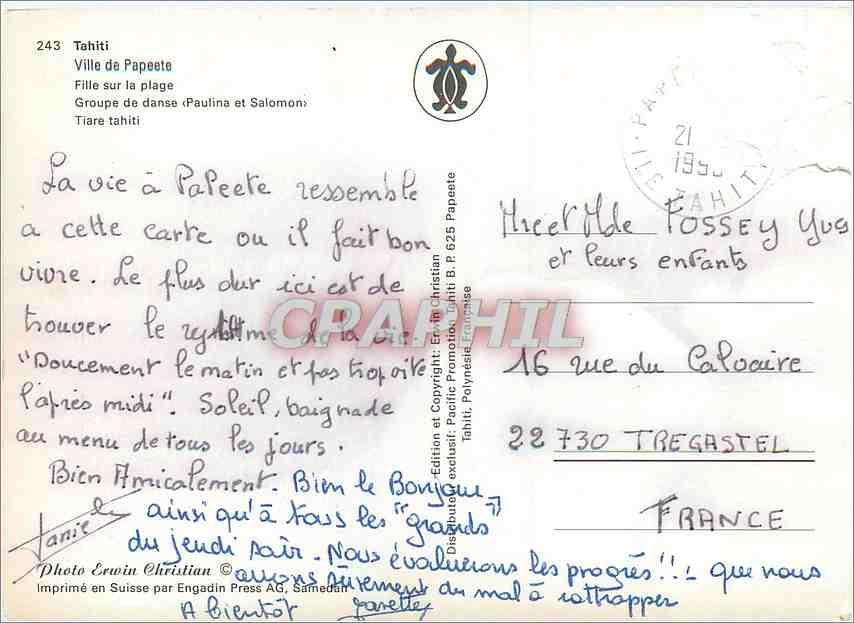 243 Tahiti
Ville de Papeete
Fille sur la plage
Groupe de danse ‹Paulina et Salomon›
Tiare tahiti
La vie à Papeete ressemble
a cette carte ou il fait bon
vivre. Le plus dur ici est de
trouver le rythme de la vie.
"Doucement le matin et pas trop vite
l'après midi". Soleil, baignade
au menu de tous les jours.
Bien Amicalement. Bien le Bonjour
ainsi qu'à tous les "grands"
du jeudi soir. Nous évaluerons les progrès!!! que nous
aurons sûrement du mal à rattrapper
A bientôt
Photo Erwin Christian ©
Imprimé en Suisse par Engadin Press AG, Samedan
Edition et Copyright: Erwin Christian
Distributeur exclusif: Pacific Promotion Tahiti B. P. 625 Papeete
Tahiti, Polynésie Française
21
ILE TAHITI
Mr et Mde FOSSEY Yves
et leurs enfants
16 rue du Calvaire
22 730 TREGASTEL
FRANCE
CPAPHIL